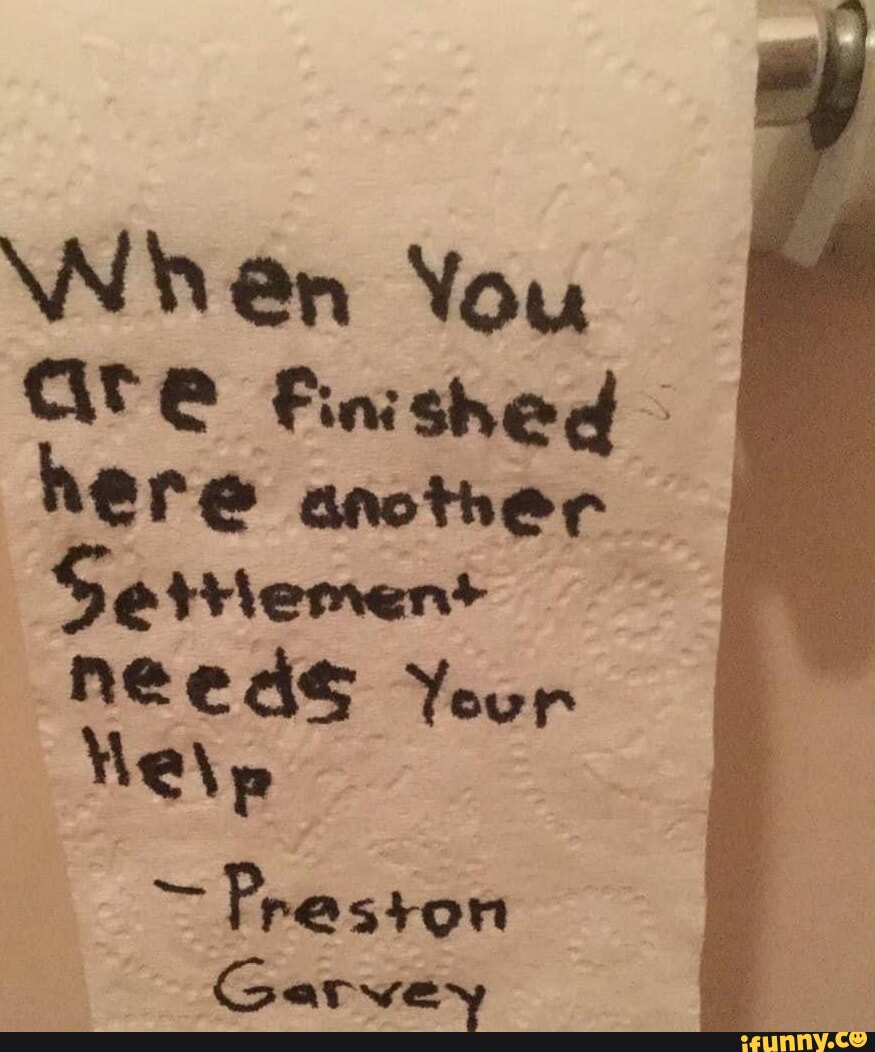 When You
are finished
here another
Settlement
needs Your
Help
- Preston
Garvey
ifunny.co